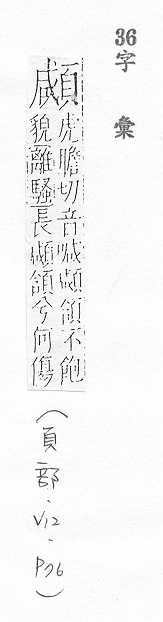 36字彙
顑
虎膽切音喊顑頷不飽
貌離騷長顑頷兮何傷
(頁部、V12、P76)